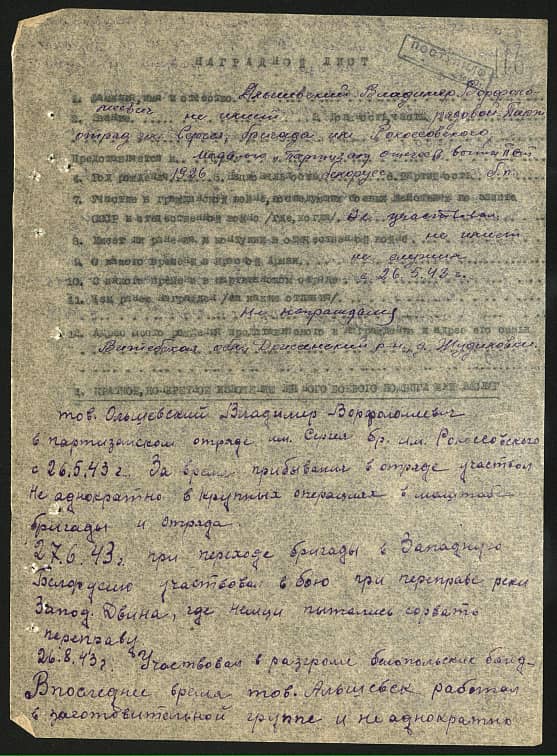 ПОСТУПИЛО
116
НАГРАДНОЙ ЛИСТ
1. Фамилия, имя и отчество Альшевский Владимир Ворфоло-
меевич
2. Звание не имеет 3. Должность, часть рядовой Парт.
отряд им. Сергея, бригада им. Рокоссовского
Представляется к медалью "Партизану отечеств. войны II ст
4. Год рождения 1926 5. Национальность белорусс 6. Партийность б.п.
7. Участие в гражданской войне, последующих боевых действиях по защите
СССР и отечественной войне /где, когда/ Не участвовал
8. Имеет ли ранения и контузии в отечественной войне не имеет
9. С какого времени в Красной Армии не служил
10. С какого времени в партизанском отряде с 26.5.43 г.
11. Чем ранее награжден /за какие отличия/
Не награждался
12. Адрес
Витебская обл Дрисенский р-н, д.
1. КРАТКОЕ, КОНКРЕТНОЕ ИЗЛОЖЕНИЕ ЛИЧНОГО БОЕВОГО ПОДВИГА ИЛИ ЗАСЛУГ
тов. Ольшевский Владимир Ворфоломиевич
в партизанском отряде им. Сергея бр. им. Рокоссовского
с 26.5.43 г. За время прибывания в отряде участвовал
не аднократно в крупных операциях в маштабе
бригады и отряда.
27.6.43 г. при переходе бригады в Западную
Белорусию участвовал в бою при переправе реки
Запад. Двина, где немци пытались сорвать
переправу
26.8.43 г. Участвовал в разгроме белопольских банд-
Впоследнее время тов. Альшевск работал
в заготовительной группе и не аднократно